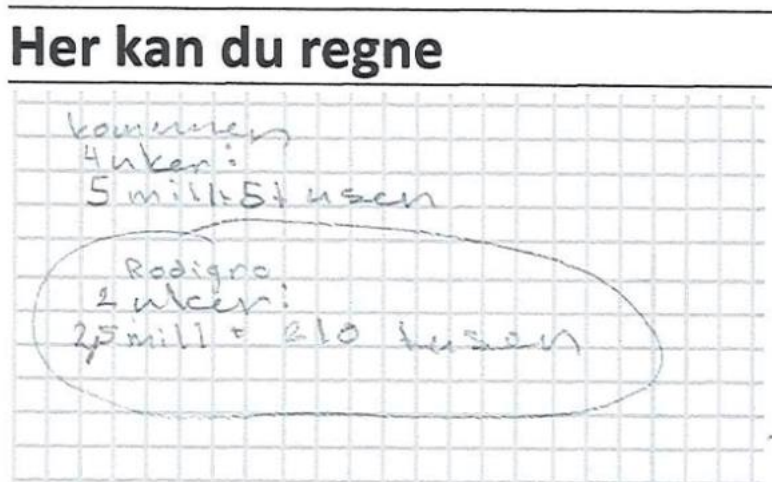 Her kan du regne
kommunen
4 uker:
5 mill + 5 tusen
Rodigro
2 uker:
2,5 mill + 210 tusen